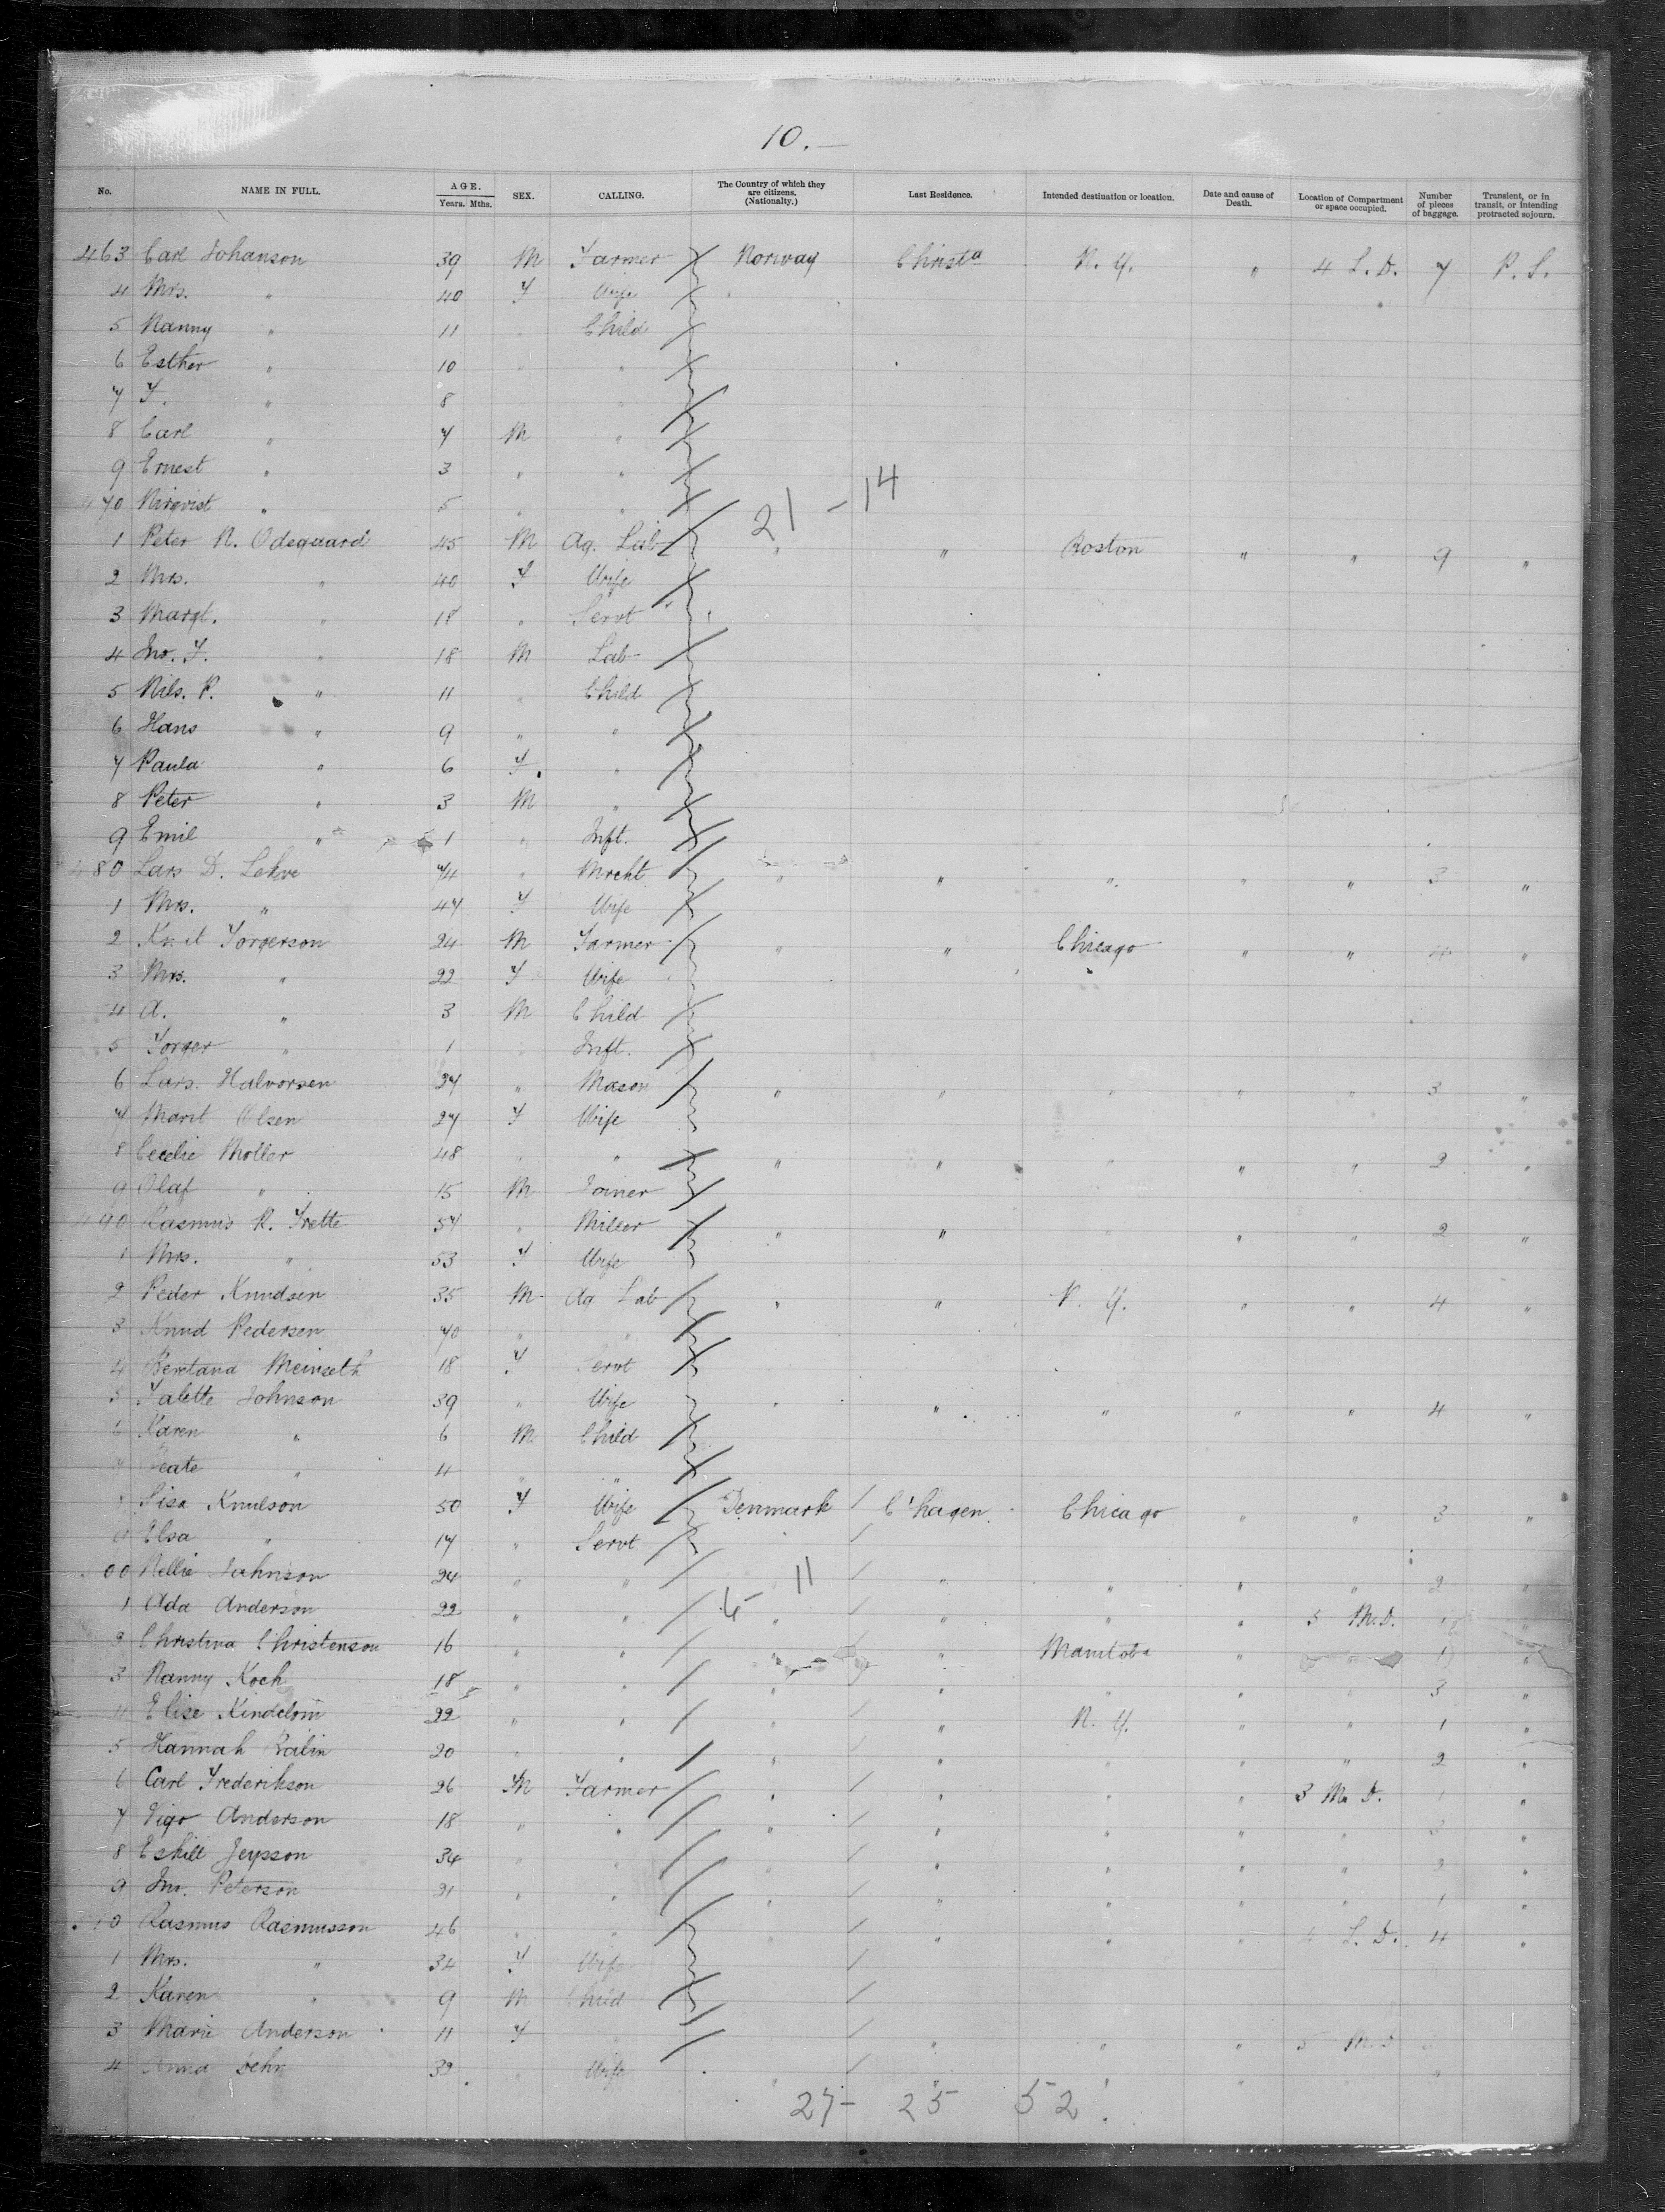 10.—
No. NAME IN FULL. AGE. Years. Mths. SEX. CALLING. The Country of which they are citizens. (Nationalty.) Last Residence. Intended destination or location. Date and cause of Death. Location of Compartment or space occupied. Number of pieces of baggage. Transient, or in transit, or intending protracted sojourn.
463 Carl Johanson 39 M Farmer Norway Christa N. Y. " 4 L. D. 7 P. S.
4 Mrs. " 40 F Wife
5 Nanny " 11 Child
6 Esther " 10 " "
7 F. " 8
8 Carl " 7 M "
9 Ernest " 3 " "
470 " 5 " "
21 - 14
1 Peter N. Odegaard 45 M Ag. Lab " " Boston " " 9 "
2 Mrs. " 40 F Wife
3 Margt. " 18 " Servt
4 Jno. F. " 18 M Lab
5 Nils. P. " 11 " Child
6 Hans " 9 " "
7 Paula " 6 F. "
8 Peter " 3 M "
9 Emil " 1 " Inft.
480 Lars D. Lekve 74 " Mrcht " " " " " 3 "
1 Mrs. " 47 F Wife
2 Knut Torgerson 24 M Farmer " " Chicago " " 4 "
3 Mrs. " 22 F Wife
4 A. " 3 M Child
5 Torger " 1 Inft.
6 Lars. Halvorsen 27 " Mason " " " " " 3 "
7 Marit Olsen 27 F Wife
8 Cecelie Moller 48 " " " " " " " 2 "
9 Olaf " 15 M Joiner
490 Rasmus R. Trette 57 " Miller " " " " " 2 "
1 Mrs. " 53 F Wife
2 Peder Knudsen 35 M Ag Lab " " N. Y. " " 4 "
3 Knud Pedersen 70 " "
4 Meinseth 18 F Servt
5 Talette Johnson 39 " Wife " " " " " 4 "
6 Karen " 6 M Child
7 Beate " 4 " "
Lisa Knulson 50 F Wife Denmark C'hagen. Chicago " " 3 "
9 Elsa " 17 " Servt
00 Nellie Johnson 24 " " " " " " 2 "
11
1 Ada Anderson 22 " " " " " " 5 M.D. "
2 Christina Christenson 16 " " " " Manitoba " " 1 "
3 Nanny Koch 18 " " " " " " " 3 "
4 Elise 22 " " " " N. Y. " " 1 "
5 Hannah 20 " " " " " " " 2 "
6 Carl Frederikson 26 M Farmer " " " " 3 M. D. 1 "
7 Vigo Anderson 18 " " " " " " " "
8 Eskill Jeysson 34 " " " " " " " 2 "
9 Jno. Peterson 21 " " " " " " " 1 "
510 Rasmus Rasmusson 46 " " " " " " 4 L. D. 4 "
1 Mrs. " 34 F Wife
2 Karen " 9 M Child
3 Marie Anderson 11 F " " " 5 M.D
4 Anna 39 " Wife " " " "
27- 25 52